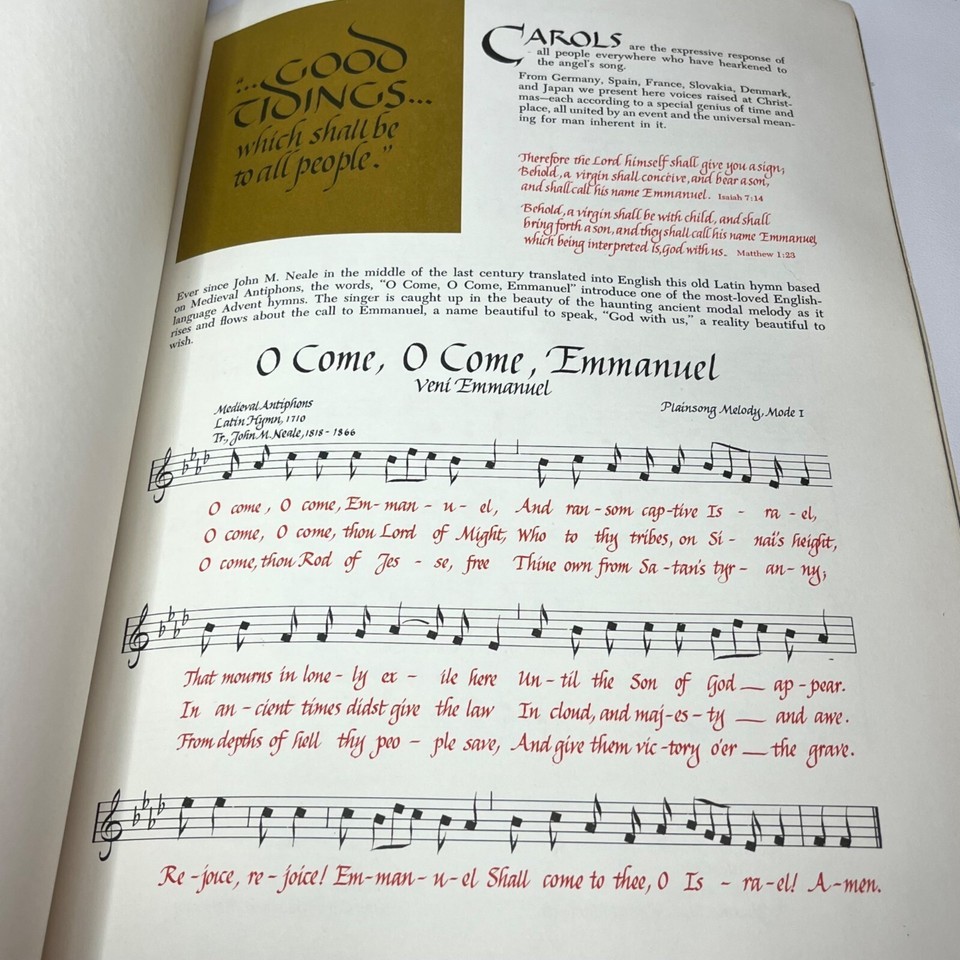 "...GOOD
TIDINGS...
which shall be
to all people."
CAROLS are the expressive response of
all people everywhere who have hearkened to
the angel's song.
From Germany, Spain, France, Slovakia, Denmark,
and Japan we present here voices raised at Christ-
mas—each according to a special genius of time and
place, all united by an event and the universal mean-
ing for man inherent in it.
Therefore the Lord himself shall give you a sign;
Behold, a virgin shall conceive, and bear a son,
and shall call his name Emmanuel. Isaiah 7:14
Behold, a virgin shall be with child, and shall
bring forth a son, and they shall call his name Emmanuel,
which being interpreted is, God with us. Matthew 1:23
Ever since John M. Neale in the middle of the last century translated into English this old Latin hymn based
on Medieval Antiphons, the words, "O Come, O Come, Emmanuel" introduce one of the most-loved English-
language Advent hymns. The singer is caught up in the beauty of the haunting ancient modal melody as it
rises and flows about the call to Emmanuel, a name beautiful to speak, "God with us," a reality beautiful to
wish.
O Come, O Come, Emmanuel
Veni Emmanuel
Medieval Antiphons
Latin Hymn, 1710
Tr., John M. Neale, 1818-1866
Plainsong Melody, Mode I
O come, O come, Em-man-u-el, And ran-som cap-tive Is-ra-el,
O come, O come, thou Lord of Might, Who to thy tribes, on Si-nai's height,
O come, thou Rod of Jes-se, free Thine own from Sa-tan's tyr-an-ny;
That mourns in lone-ly ex-ile here Un-til the Son of God__ ap-pear.
In an-cient times didst give the law In cloud, and maj-es-ty __ and awe.
From depths of hell thy peo-ple save, And give them vic-tory o'er __ the grave.
Re-joice, re-joice! Em-man-u-el Shall come to thee, O Is-ra-el! A-men.